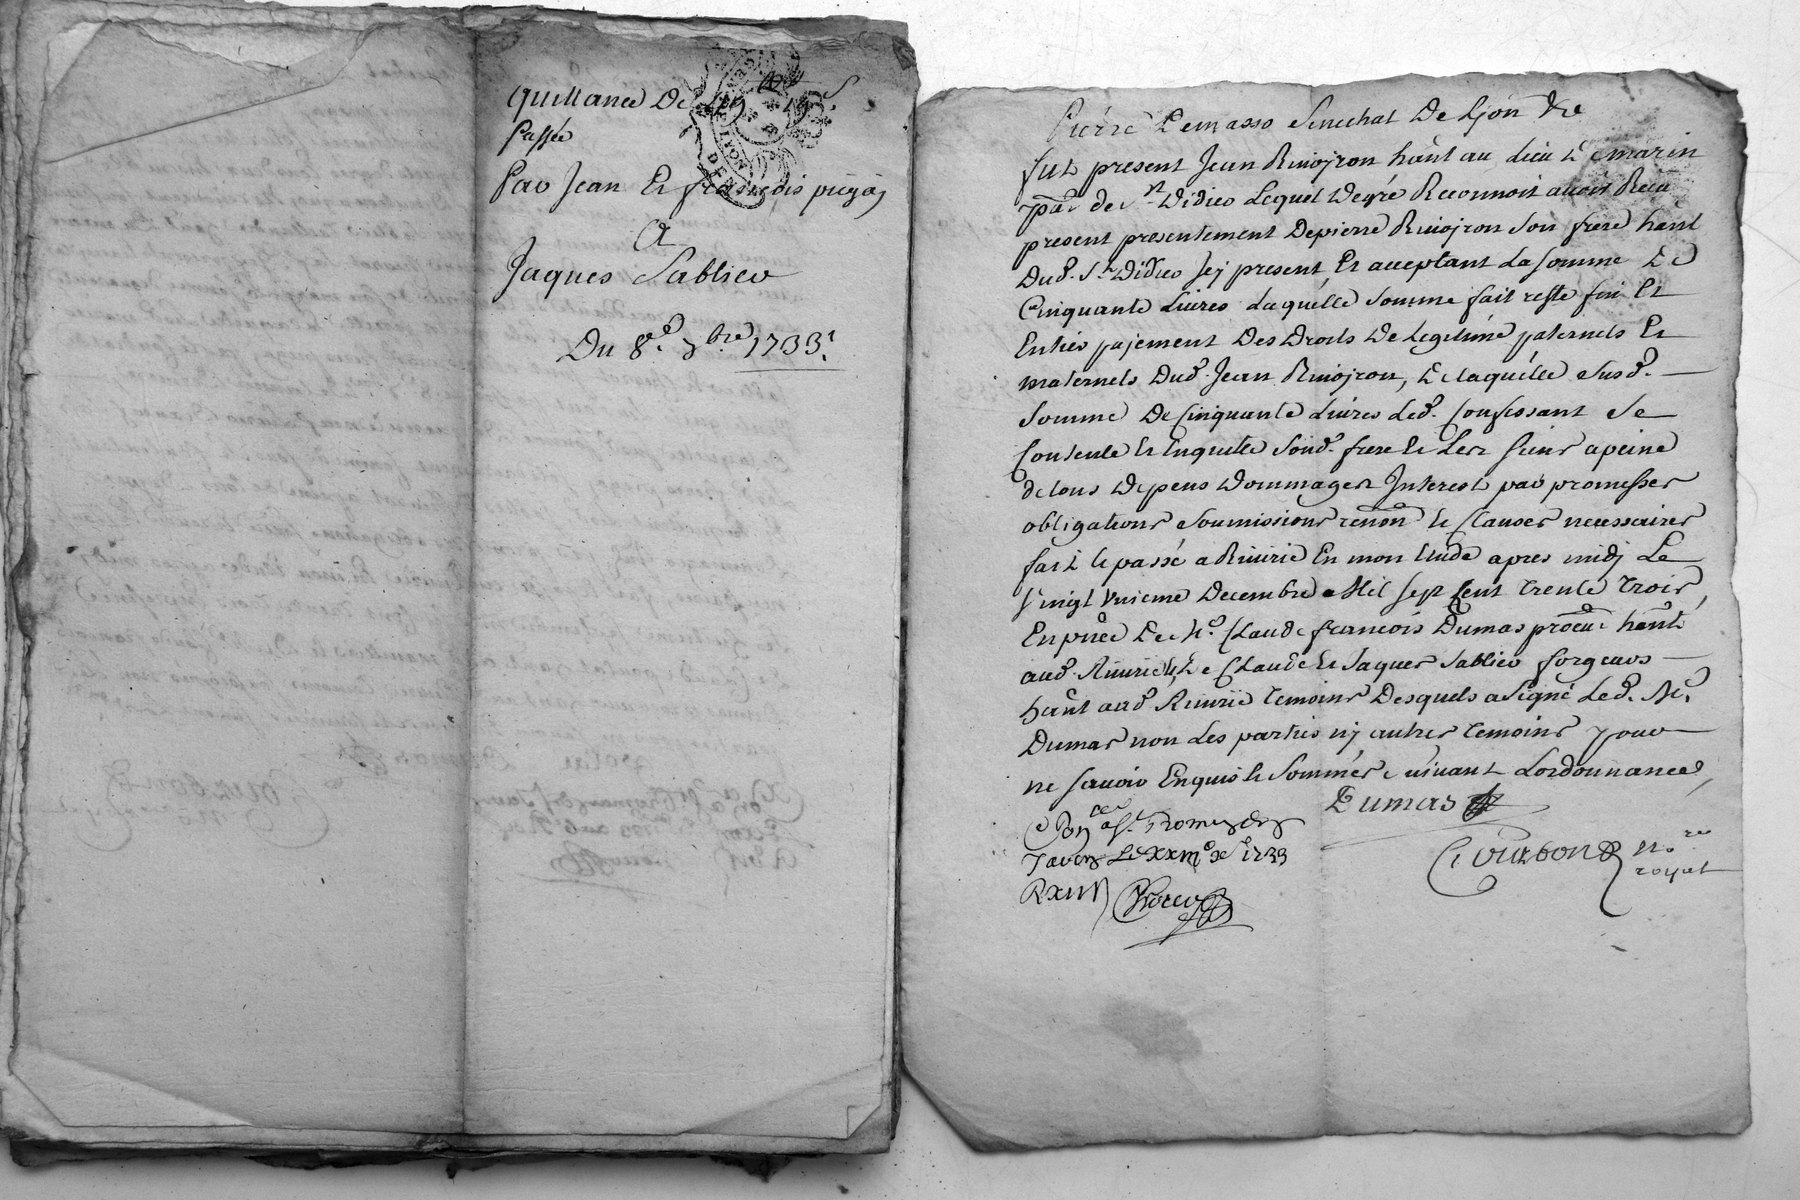 quittance De
Passée
Par Jean Et françois
A
Jaques Sablier
Du 8.e 1733.
Pierre Demasso Senechal De Lyon
fut present Jean Rivojron hãnt au Lieu Demarin
par. de St. Didier Lequel Degré Reconnoit avoir Recu
present presentement Depierre Rivojron Son frere hãnt
Dud. St. Didier Jcy present Et acceptant La Somme De
Cinquante Livres Laquelle Somme fait reste fin Et
Entier pajement Des Droits De Legitime paternels Et
maternels Dud. Jean Rivojron, De laquelle Susd.
Somme De Cinquante Livres Led. Confessant Se
Contente Et Enquitte Sond. frere Et Les Siens a peine
de tous Depens Dommages Interest par promesses
obligations Soumissions renõn Et Clauses necessaires
fait Et passé a Riuirie En mon Etude apres midj Le
Vingt Vnieme Decembre Mil Sept Cent Trente Trois,
En pñce De Claude francois Dumas hãnt
aud. Riuirie, De Claude Et Jaques Sablier forgeurs
hãnt aud. Riuirie Temoins Desquels a Signé Led. Me.
Dumas non Les parties nj autres Temoins pour
ne Sçavoir Enquis Et Sommés Suivant Lordonnance,
Dumas
a St. Romain
Le 1733
no.re
royal